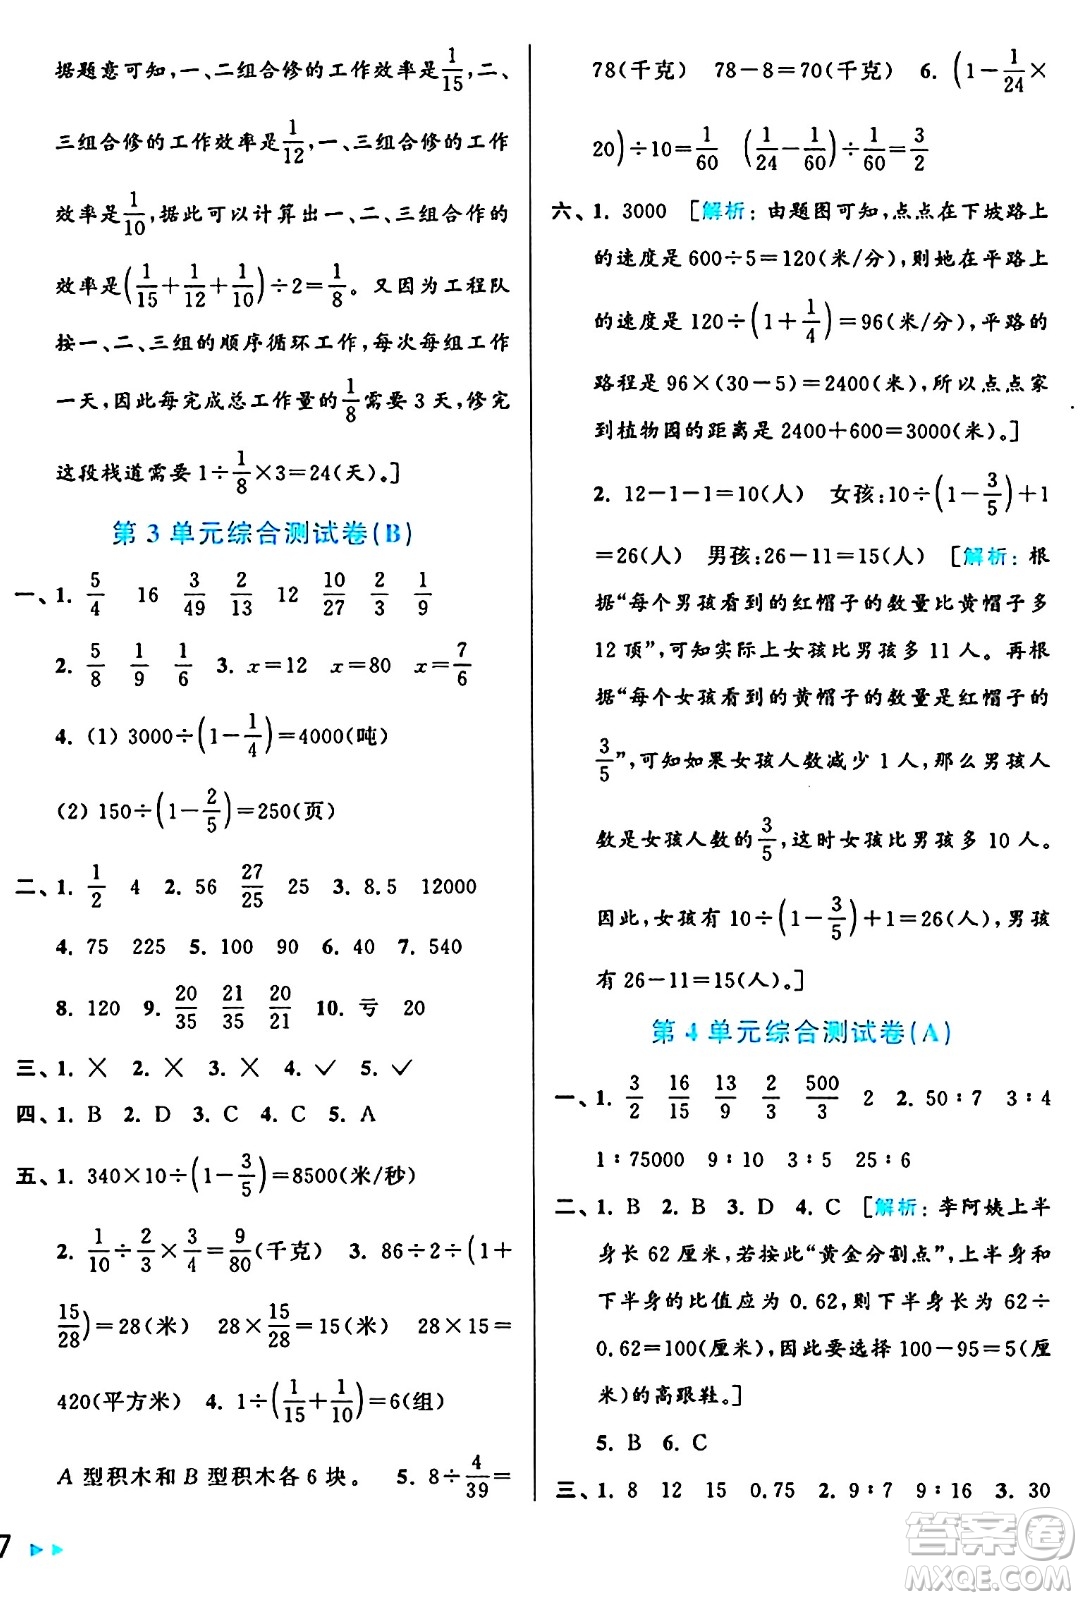 据题意可知,一、二组合修的工作效率是1/15,二、
三组合修的工作效率是1/12,一、三组合修的工作
效率是1/10,据此可以计算出一、二、三组合作的
效率是(1/15+1/12+1/10)÷2=1/8。又因为工程队
按一、二、三组的顺序循环工作,每次每组工作
一天,因此每完成总工作量的1/8需要3天,修完
这段栈道需要1÷1/8×3=24(天)。]
第3单元综合测试卷(B)
一、1. 5/4 16 3/49 2/13 12 10/27 2/3 1/9
2. 5/8 1/9 1/6 3. x=12 x=80 x=7/6
4. (1) 3000÷(1-1/4)=4000(吨)
(2) 150÷(1-2/5)=250(页)
二、1. 1/2 4 2. 56 27/25 25 3. 8.5 12000
4. 75 225 5. 100 90 6. 40 7. 540
8. 120 9. 20/35 21/35 20/21 10. 亏 20
三、1. × 2. × 3. × 4. ✓ 5. ✓
四、1. B 2. D 3. C 4. C 5. A
五、1. 340×10÷(1-3/5)=8500(米/秒)
2. 1/10÷2/3×3/4=9/80(千克) 3. 86÷2÷(1+
15/28)=28(米) 28×15/28=15(米) 28×15=
420(平方米) 4. 1÷(1/15+1/10)=6(组)
A型积木和B型积木各6块。 5. 8÷4/39=
7
78(千克) 78-8=70(千克) 6. (1-1/24×
20)÷10=1/60 (1/24-1/60)÷1/60=3/2
六、1. 3000 [解析:由题图可知,点点在下坡路上
的速度是600÷5=120(米/分),则她在平路上
的速度是120÷(1+1/4)=96(米/分),平路的
路程是96×(30-5)=2400(米),所以点点家
到植物园的距离是2400+600=3000(米)。]
2. 12-1-1=10(人) 女孩:10÷(1-3/5)+1
=26(人) 男孩:26-11=15(人) [解析:根
据“每个男孩看到的红帽子的数量比黄帽子多
12顶”,可知实际上女孩比男孩多11人。再根
据“每个女孩看到的黄帽子的数量是红帽子的
3/5”,可知如果女孩人数减少1人,那么男孩人
数是女孩人数的3/5,这时女孩比男孩多10人。
因此,女孩有10÷(1-3/5)+1=26(人),男孩
有26-11=15(人)。]
第4单元综合测试卷(A)
一、1. 3/2 16/15 13/9 2/3 500/3 2 2. 50∶7 3∶4
1∶75000 9∶10 3∶5 25∶6
二、1. B 2. B 3. D 4. C [解析:李阿姨上半
身长62厘米,若按此“黄金分割点”,上半身和
下半身的比值应为0.62,则下半身长为62÷
0.62=100(厘米),因此要选择100-95=5(厘
米)的高跟鞋。]
5. B 6. C
三、1. 8 12 15 0.75 2. 9∶7 9∶16 3. 30
答案圈
MXQE.COM